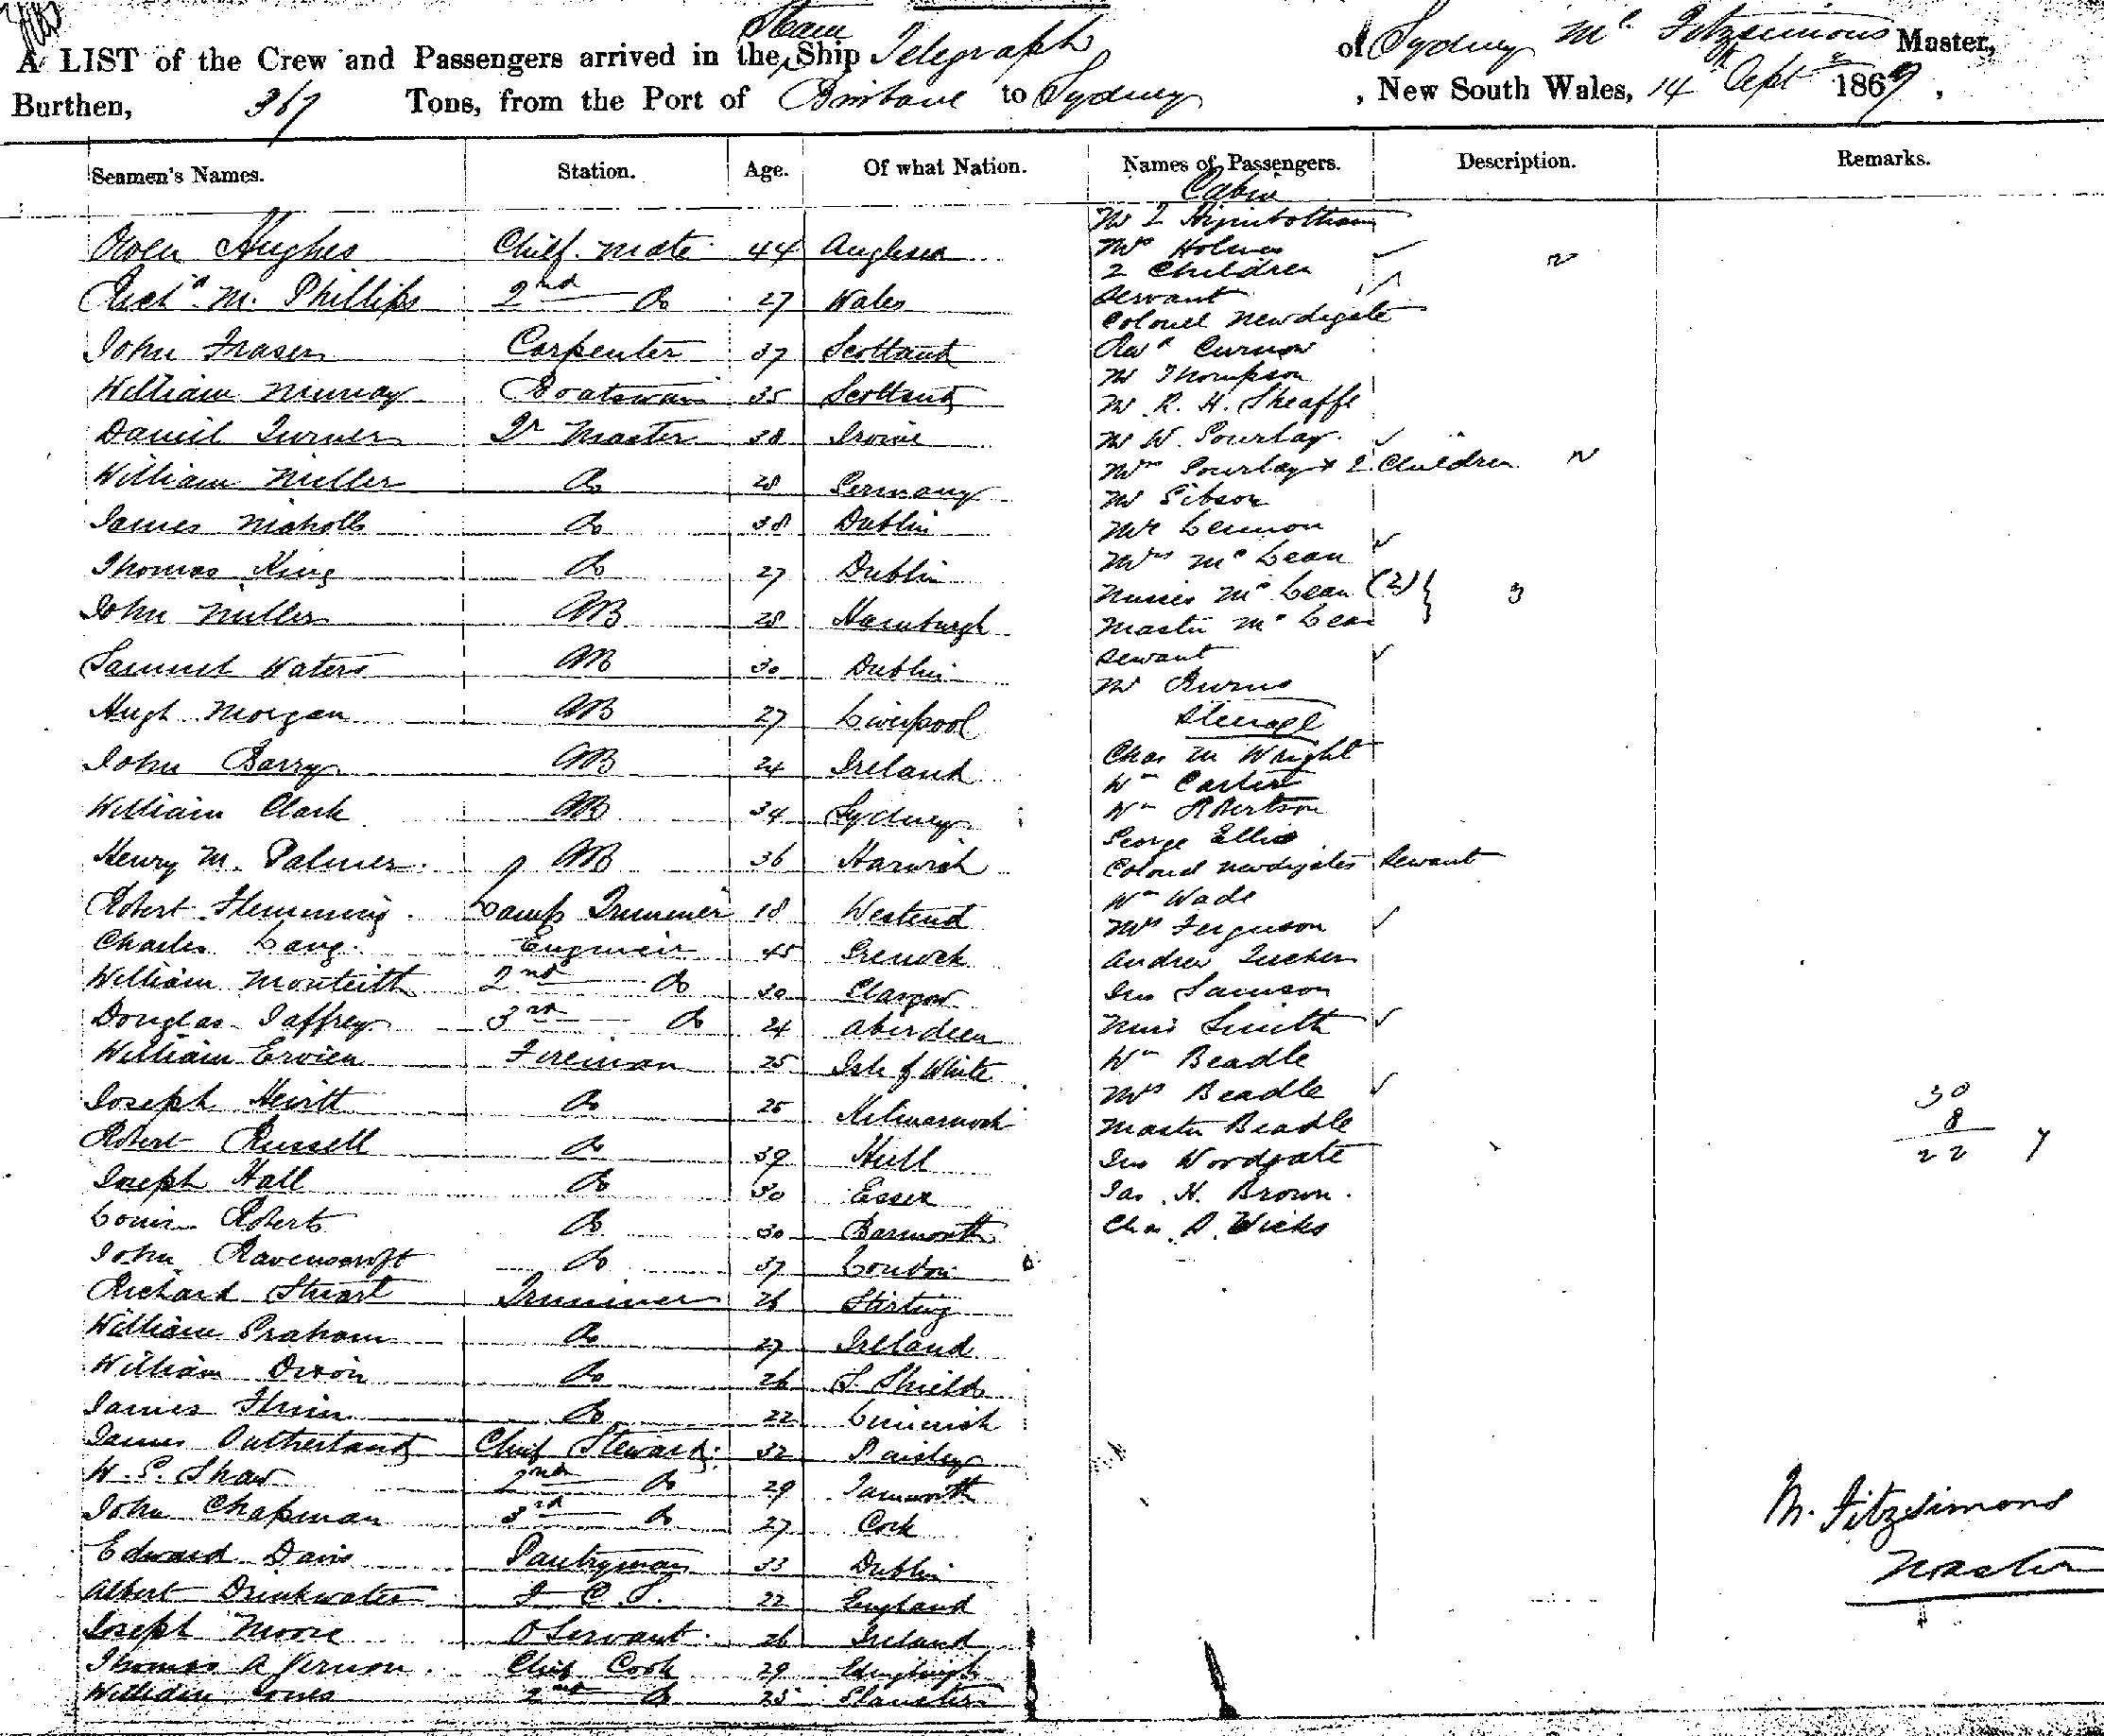 A LIST of the Crew and Passengers arrived in the Steam Ship Telegraph of Sydney Mc Fitzsimons Master,
Burthen, 367 Tons, from the Port of Brisbane to Sydney, New South Wales, 14th Sept 1869,
Seamen's Names. Station. Age. Of what Nation. Names of Passengers. Description. Remarks.
Owen Hughes Chief Mate 44 Anglesea
Richd M. Phillips 2nd Do 27 Wales
John Fraser Carpenter 37 Scotland
William Murray Boatswain 35 Scotland
Daniel Turner Qr Master 38 Irvine
William Miller Do 28 Germany
James Nicholls Do 38 Dublin
Thomas King Do 27 Dublin
John Miller AB 28 Hamburgh
Samuel Waters AB 30 Dublin
Hugh Morgan AB 27 Liverpool
John Barry AB 24 Ireland
William Clark AB 34 Sydney
Henry M. Palmer AB 36 Harwich
Robert Flemming Lamp Trimmer 18 Westend
Charles Lang Engineer 45 Greenock
William Monteith 2nd Do 30 Glasgow
Douglas Jaffrey 3rd Do 24 Aberdeen
William Ervien Fireman 25 Isle of White
Joseph Hewitt Do 25 Kilmarnock
Robert Russell Do 39 Hull
Joseph Hall Do 30 Essex
Louis Roberts Do 30 Barmouth
John Ravenscroft Do 37 London
Richard Stuart Trimmer 26 Stirling
William Graham Do 27 Ireland
William Dixon Do 26 S. Shields
James Do 22 Limerick
James Sutherland Chief Steward 32 Paisley
W. G. Shaw 2nd Do 29 Tamworth
John Chapman 3rd Do 27 Cork
Edward Davis Pantryman 33 Dublin
Albert Drinkwater F C S. 22 England
Joseph Moore O Servant 26 Ireland
Thomas A Vernon Chief Cook 29 Edinburgh
William Jones 2nd Do 25
Cabin
Mr I Higinbotham
Mrs Holmes
2 Children 2
Servant
Colonel Newdigate
Revd Curnow
Mr Thompson
Mr R. H. Sheaffe
Mr W. Gourlay
Mrs Gourlay & 2 Children 2
Mr Gibson
Mr Lennon
Mrs McLean
Misses McLean (2) } 3
Master McLean
Servant
Mr Burns
Steerage
Chas M Wright
Wm Carter
Wm Robertson
George Ellis
Colonel Newdigates Servant
Wm Wade
Mrs Ferguson
Andrew Tucker
Jno Samson
Miss Smith
Wm Beadle
Mrs Beadle
Master Beadle
Jno Woodgate
Jas. H. Brown.
Chas. D. Wicks
30
8
22 y
M. Fitzsimons
Master